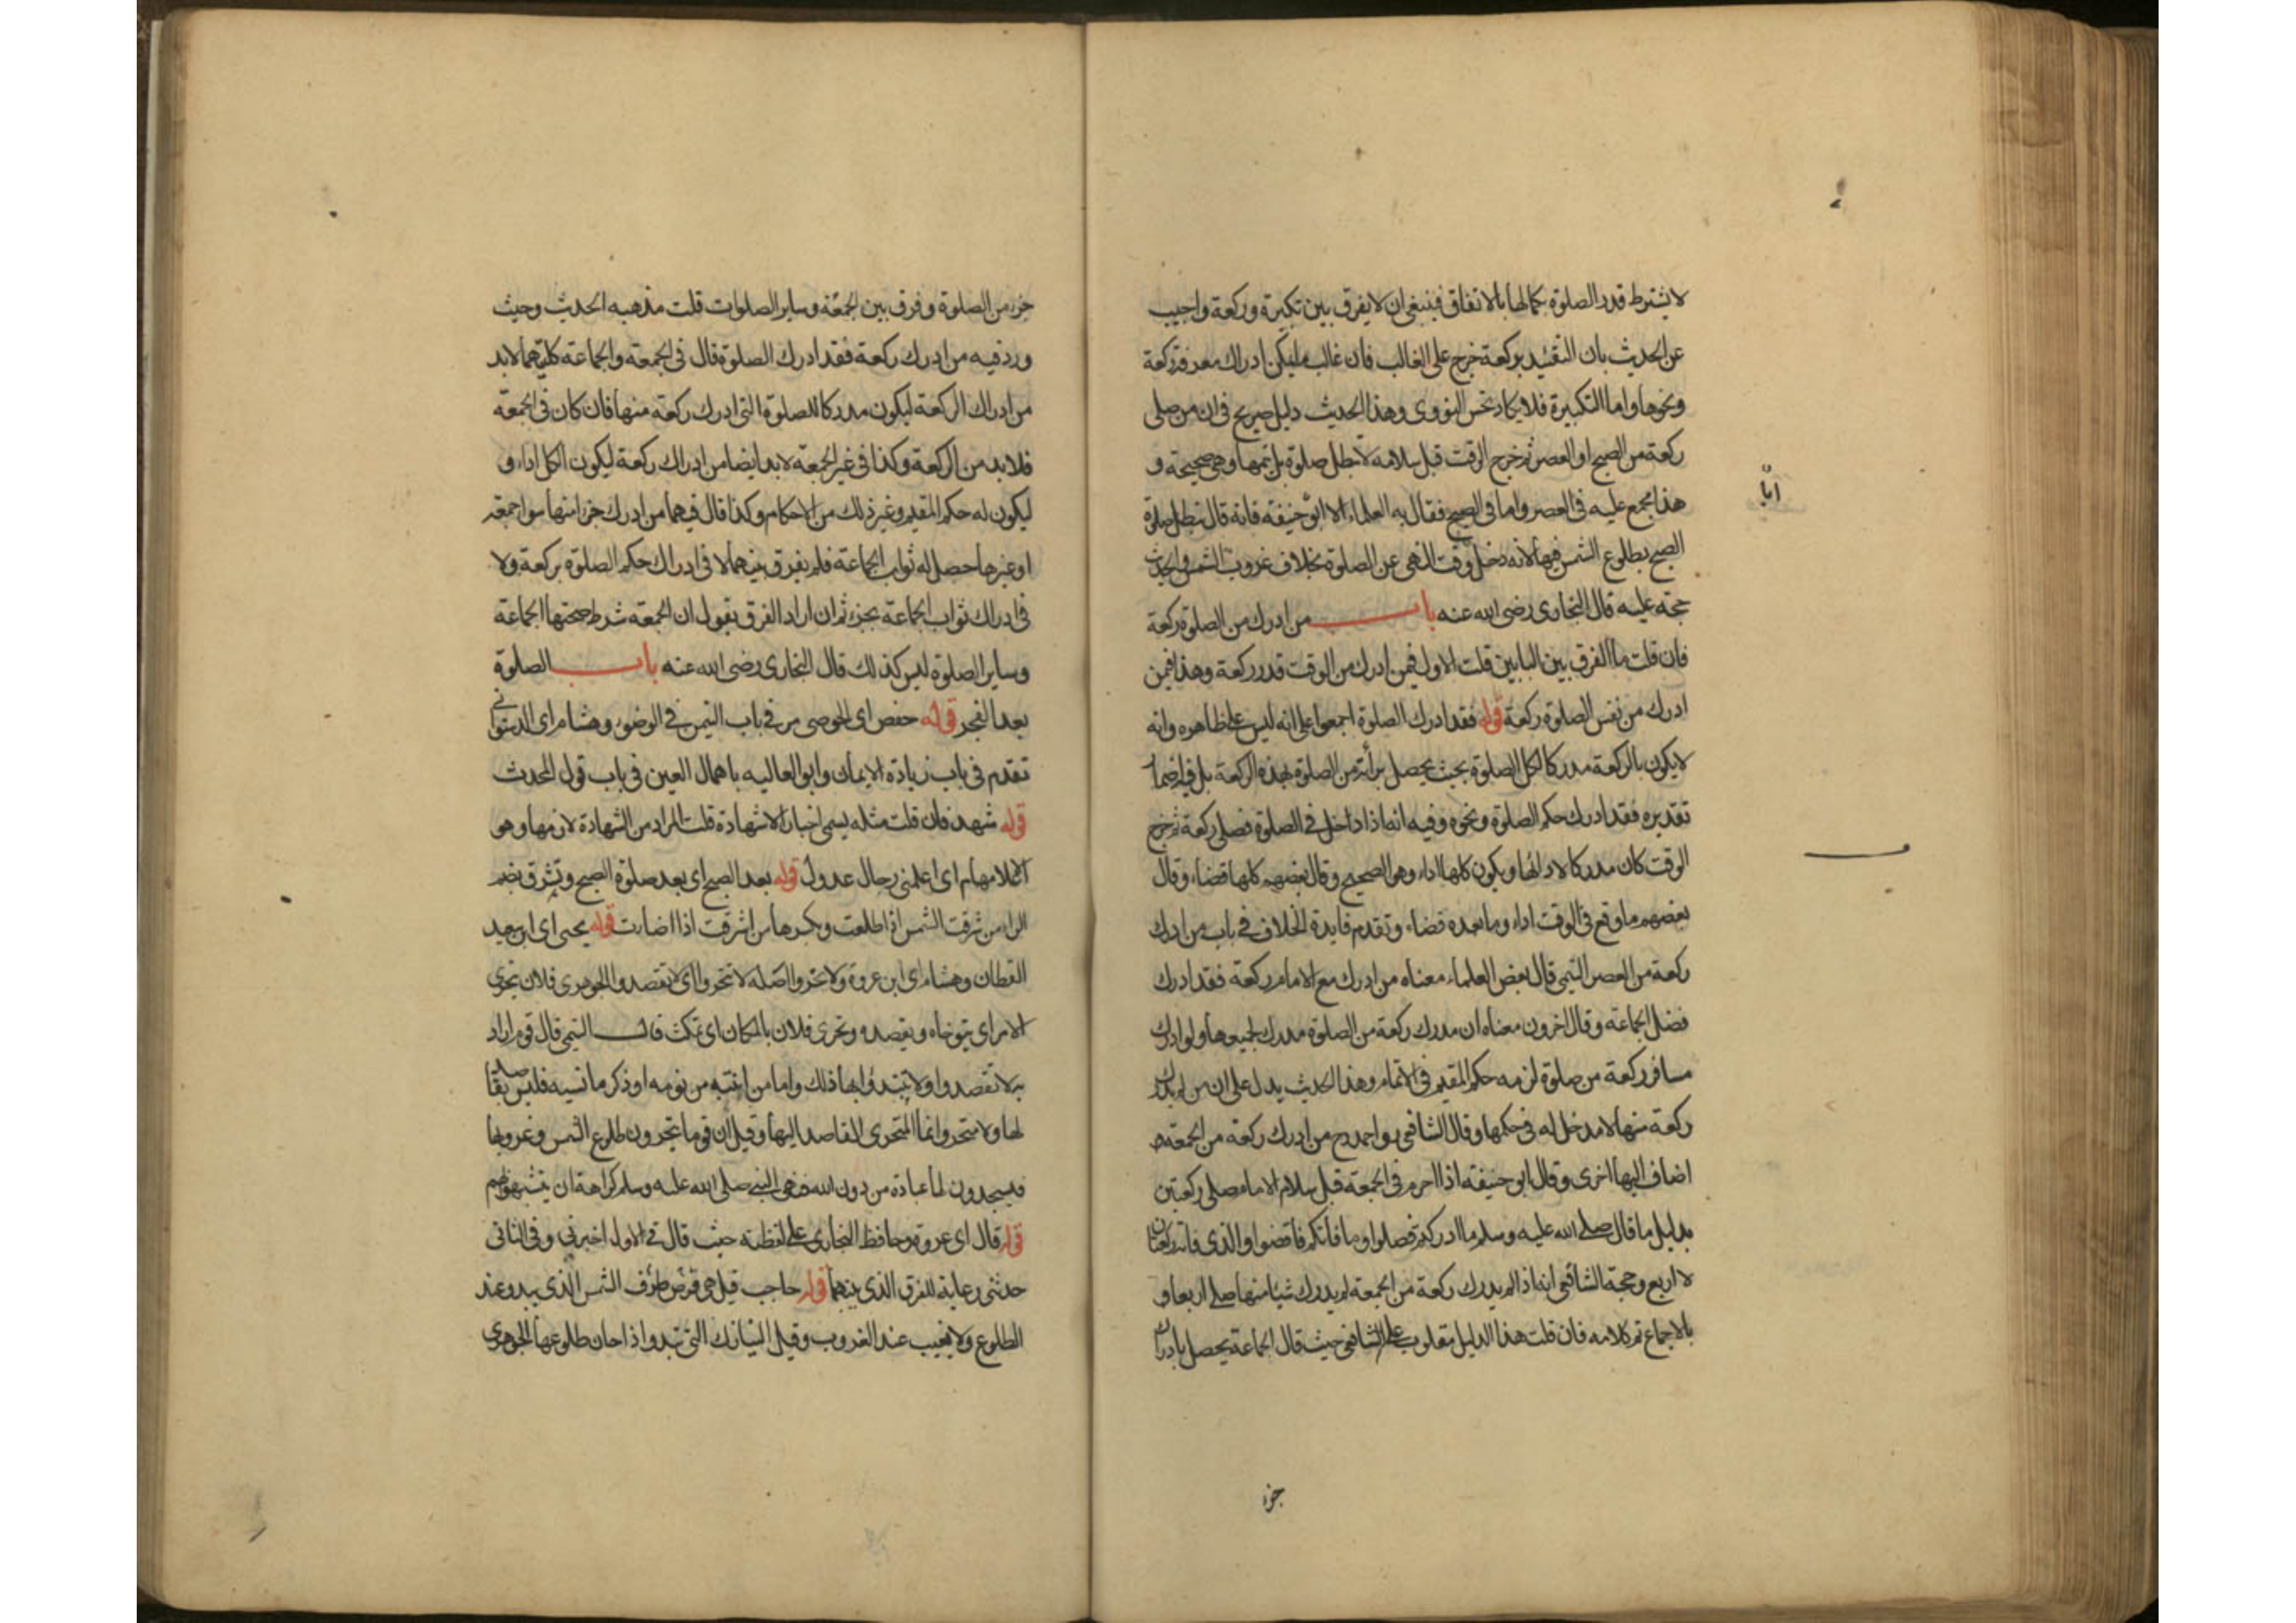 لا يشترط قدر الصلوة بكمالها بالاتفاق فينبغي ان لا يفرق بين تكبيرة وركعة واجيب
عن الحديث بان التقييد بركعة خرج على الغالب فان غالب ما يمكن ادراك معرفته ركعة
ونحوها واما التكبيرة فلا يكاد تحس النووي وهذا الحديث دليل صريح في ان من صلى
ركعة من الصبح او العصر ثم خرج الوقت قبل سلامه لا تبطل صلوته بل يتمها وهي صحيحة و
هذا مجمع عليه في العصر واما في الصبح فقال به العلماء الا ابو حنيفة فانه قال تبطل صلوة
ابا
الصبح بطلوع الشمس فيها لانه دخل وقت النهي عن الصلوة بخلاف غروب الشمس والحديث
حجة عليه قال البخاري رضى الله عنه باب من ادرك من الصلوة ركعة
فان قلت ما الفرق بين البابين قلت الاول فيمن ادرك من الوقت قدر ركعة وهذا فيمن
ادرك من نفس الصلوة ركعة قوله فقد ادرك الصلوة اجمعوا على انه ليس على ظاهره وانه
لا يكون بالركعة مدركا لكل الصلوة بحيث يحصل برأته من الصلوة بهذه الركعة بل فيه اضمار
تقديره فقد ادرك حكم الصلوة ونحوه وفيه انه اذا داخل في الصلوة فصلى ركعة ثم خرج
الوقت كان مدركا لادائها ويكون كلها اداء وهو الصحيح وقال بعضهم كلها قضاء وقال
بعضهم ما وقع في الوقت اداء وما بعده قضاء وتقدم فايدة الخلاف في باب من ادرك
ركعة من العصر التيمي قال بعض العلماء معناه من ادرك مع الامام ركعة فقد ادرك
فضل الجماعة وقال اخرون معناه ان مدرك ركعة من الصلوة مدرك لجميعها ولو ادرك
مسافر ركعة من صلوة لزمه حكم المقيم في الاتمام وهذا الحديث يدل على ان من لم يدرك
ركعة منها لا مدخل له في حكمها وقال الشافعي واحمد من ادرك ركعة من الجمعة
اضاف اليها اخرى وقال ابو حنيفة اذا احرم في الجمعة قبل سلام الامام صلى ركعتين
بدليل ما قال صلى الله عليه وسلم ما ادركتم فصلوا وما فاتكم فاقضوا والذي فاته ركعتان
لا اربع وحجة الشافعي انه اذا لم يدرك ركعة من الجمعة لم يدرك شيئا منها صلى اربعا و
بالاجماع تم كلامه فان قلت هذا الدليل مقلوب على الشافعي حيث قال الجماعة يحصل بادراك
جزء
جزء من الصلوة وفرق بين الجمعة وساير الصلوات قلت مذهبه الحديث وحيث
ورد فيه من ادرك ركعة فقد ادرك الصلوة قال في الجمعة والجماعة كليهما لابد
من ادراك الركعة ليكون مدركا للصلوة التي ادرك ركعة منها فان كان في الجمعة
فلا بد من الركعة وكذا في غير الجمعة لابد ايضا من ادراك ركعة ليكون الكل اداء و
ليكون له حكم المقيم وغير ذلك من الاحكام وكذا قال فيهما من ادرك جزء منها سواء جمعة
او غيرها حصل له ثواب الجماعة فلم يفرق بينهما لا في ادراك حكم الصلوة بركعة ولا
في ادراك ثواب الجماعة بجزء ثم ان اراد الفرق يقول ان الجمعة شرط صحتها الجماعة
وساير الصلوة ليس كذلك قال البخاري رضى الله عنه باب الصلوة
بعد الفجر قوله حفص اي الحوضي مر في باب التيمن في الوضوء وهشام اي الدستوائي
تقدم في باب زيادة الايمان وابو العاليه باهمال العين في باب قول المحدث
قوله شهد فان قلت مثله يسمى اخبارا لا شهادة قلت المراد من الشهادة لازمها وهو
الاعلام اي اعلمني رجال عدول قوله بعد الصبح اي بعد صلوة الصبح وتشرق بضم
الراء من شرقت الشمس اذا طلعت وبكسرها من اشرقت اذا اضاءت قوله يحيى اي ابن سعيد
القطان وهشام اي ابن عروة ولا تحروا اصله لا تتحروا اي لا تقصدوا الجوهري فلان يتحرى
الامر اي يتوخاه ويقصده وتحرى فلان بالمكان اي تمكث قال التيمي قال قوم اراد
به لا تقصدوا ولا تبتدؤا بها ذلك واما من انتبه من نومه او ذكر ما نسيه فليس بقاصد
لها ولا متحر وانما المتحري القاصد اليها وقيل ان قوما يتحرون طلوع الشمس وغروبها
فيسجدون لها عبادة من دون الله فنهى النبي صلى الله عليه وسلم كراهة ان يتشبهوا بهم
قوله قال اي عروة وحافظ البخاري على لفظته حيث قال في الاول اخبرني وفي الثاني
حدثني رعاية للفرق الذي بينهما قوله حاجب قيل هي قرص طرف الشمس الذي يبدو عند
الطلوع ولا يغيب عند الغروب وقيل النيازك التي تبدوا اذا حان طلوعها الجوهري